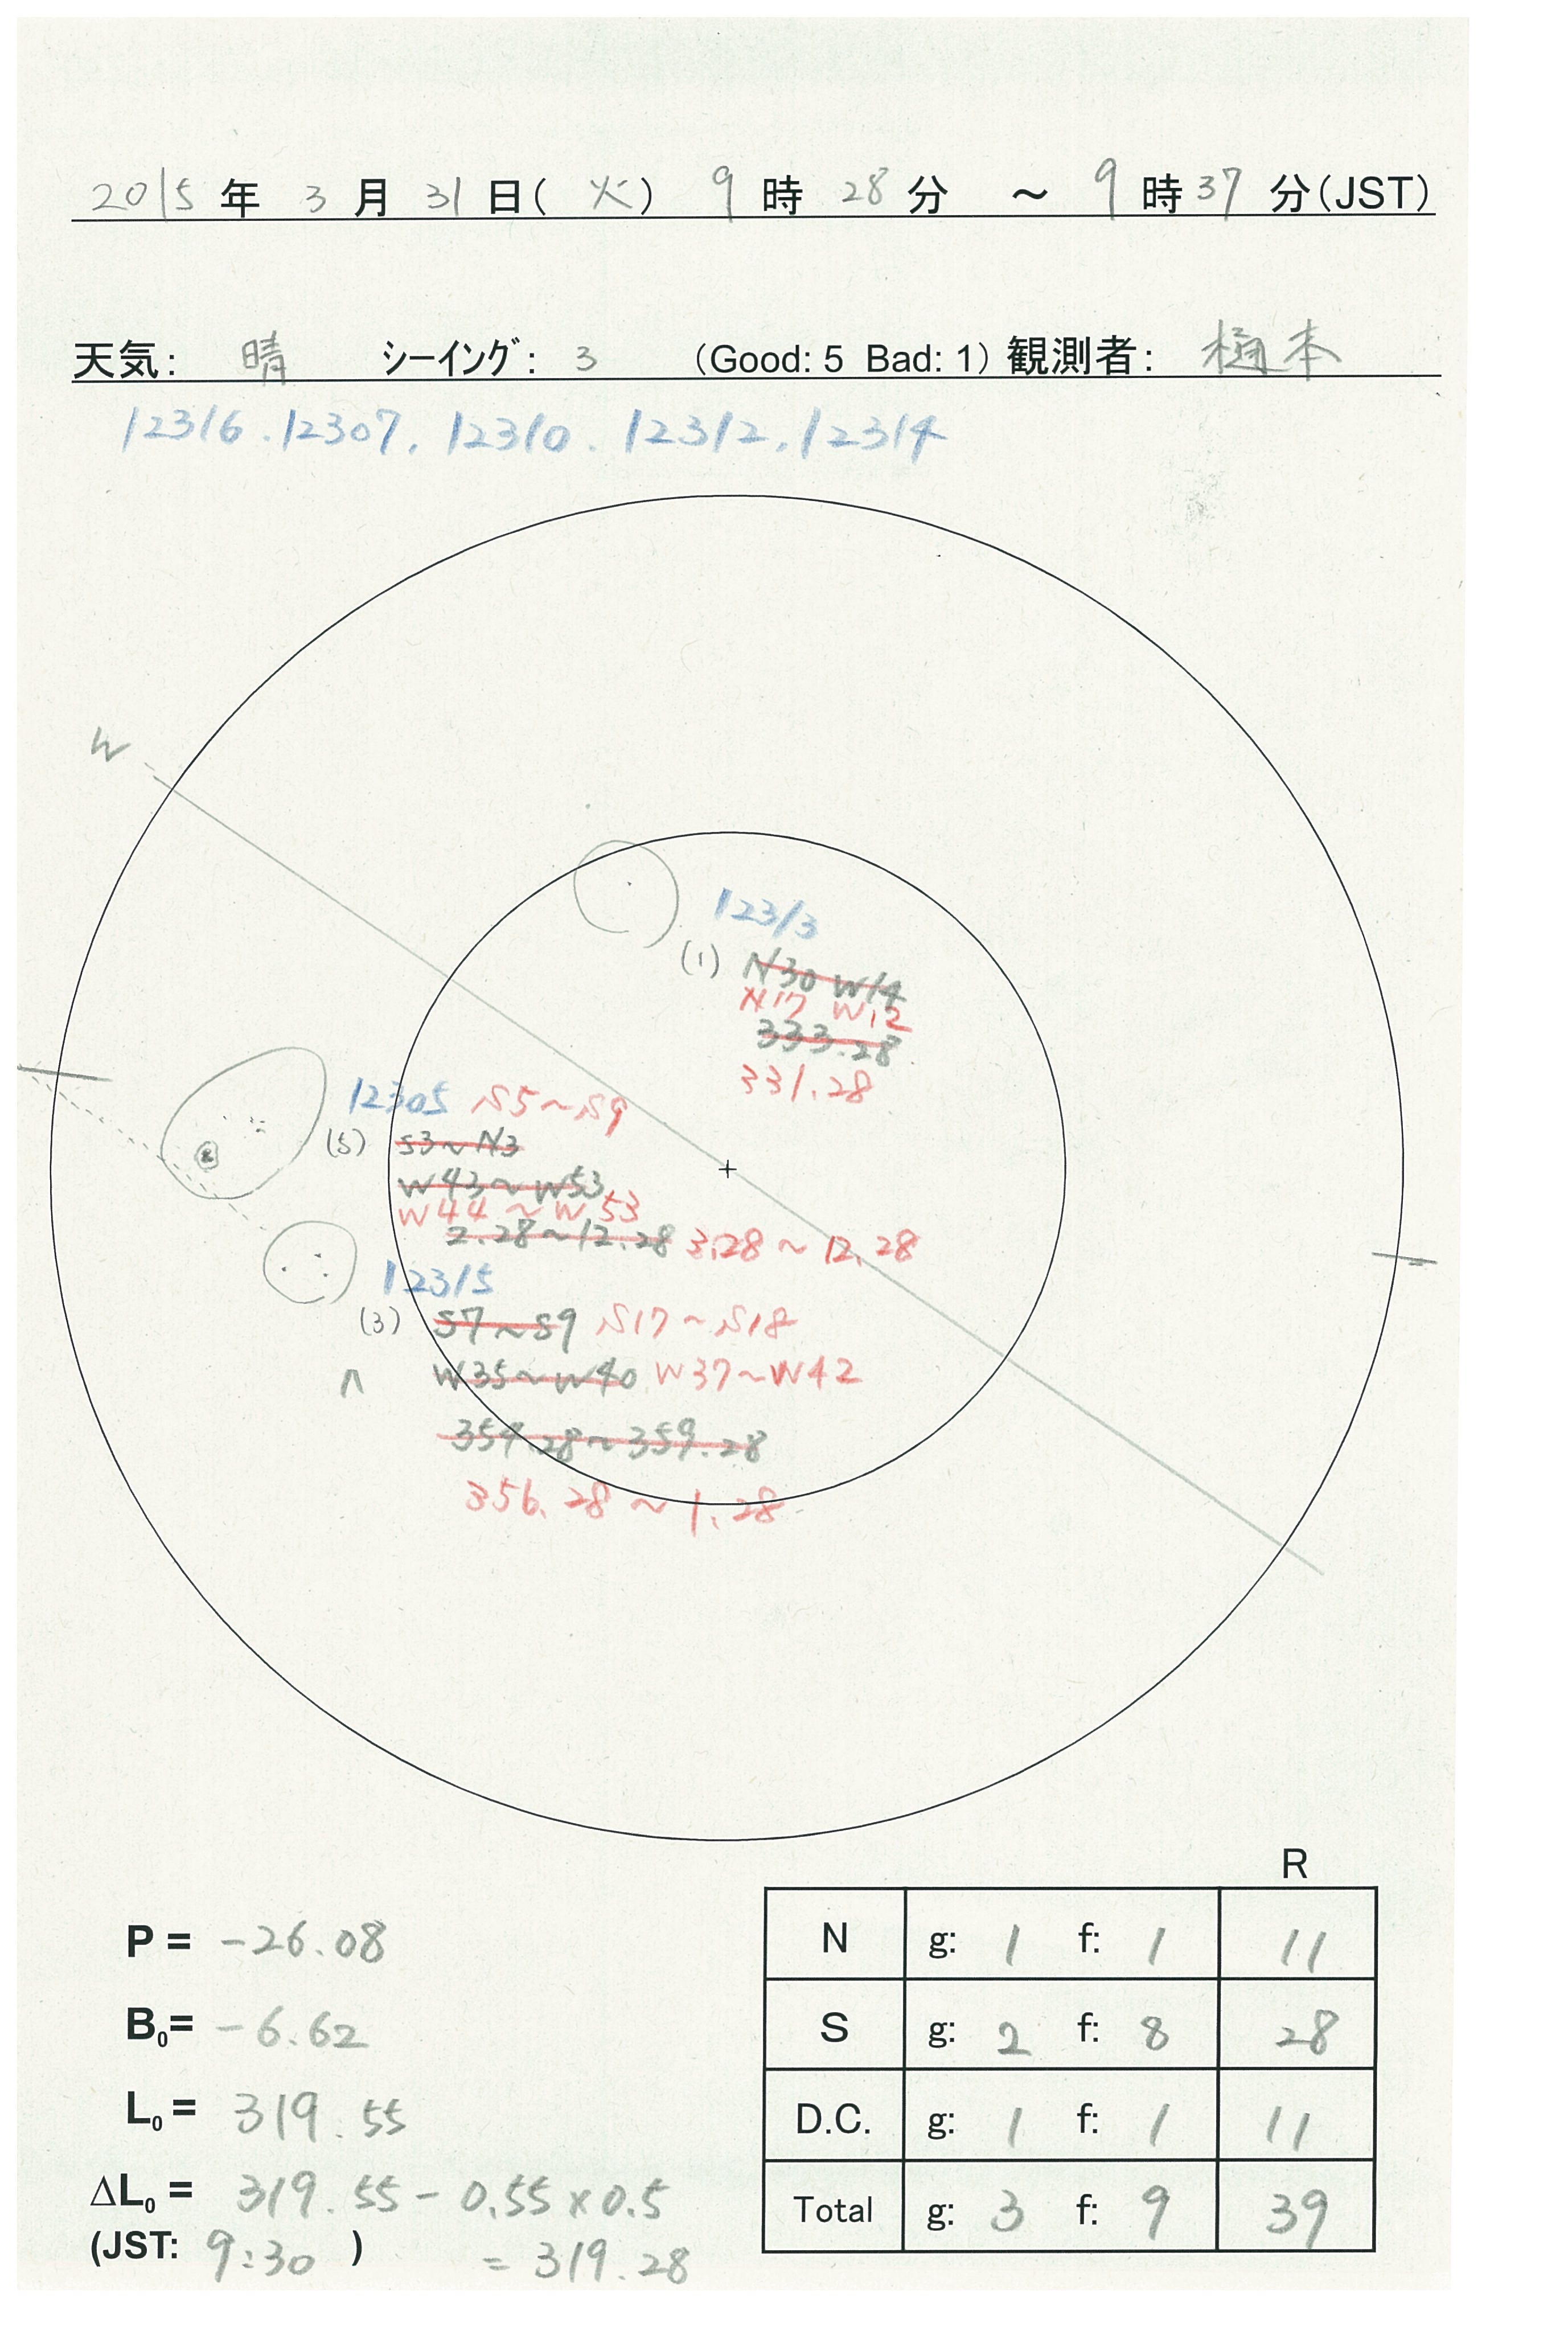 2015年 3月 31日(火) 9時 28分 ～ 9時37分(JST)
天気: 晴 シーイング: 3 (Good: 5 Bad: 1) 観測者: 樋本
12316. 12307, 12310. 12312, 12314
W
12313
(1) N30 W14
N17 W12
333.28
331.28
12305 S5~S9
(5) S3~N3
W43~W53
W44~W53
2.28~12.28 3.28~12.28
12315
(3) S7~S9 S17~S18
W35~W40 W37~W42
354.28~359.28
356.28~1.28
R
N g: 1 f: 1 11
S g: 2 f: 8 28
D.C. g: 1 f: 1 11
Total g: 3 f: 9 39
P = -26.08
B₀= -6.62
L₀ = 319.55
ΔL₀ = 319.55 - 0.55×0.5
(JST: 9:30 ) = 319.28